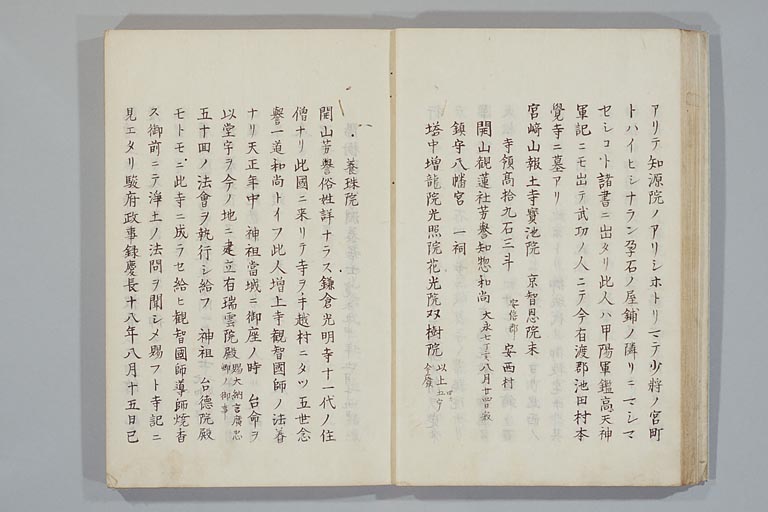 アリテ知源院ノアリシホトリマテ少將ノ宮町
トハイヒシナラン孕石ノ屋鋪ノ隣リニマシマ
セシコト諸書ニ出タリ此人ハ甲陽軍鑑高天神
軍記ニモ出テ武功ノ人ニテ今有渡郡池田村本
覺寺ニ墓アリ
宮﨑山報土寺寳池院 京智恩院末
寺領高拾九石三斗 安倍郡 安西村
開山觀蓮社芳譽知惣和尚 大永七 八月廿四日寂
鎮守八幡宮 一祠
塔中増龍院光照院花光院双樹院 以上
養珠院
開山芳譽俗姓詳ナラス鎌倉光明寺十一代ノ住
僧ナリ此國ニ來リテ寺ヲ手越村ニタツ五世念
譽一道和尚トイフ此人增上寺観智國師ノ法眷
ナリ天正年中 神祖當城ニ御座ノ時 台命ヲ
以堂宇ヲ今ノ地ニ建立右瑞雲院殿 贈大納言廣忠卿ノ御事
五十回ノ法會ヲ執行シ給フ 神祖 台德院殿
モトモニ此寺ニ成ラセ給ヒ観智國師導師焼香
ス御前ニテ淨土ノ法問ヲ聞シメ賜フト寺記ニ
見エタリ駿府政事錄慶長十八年八月十五日己